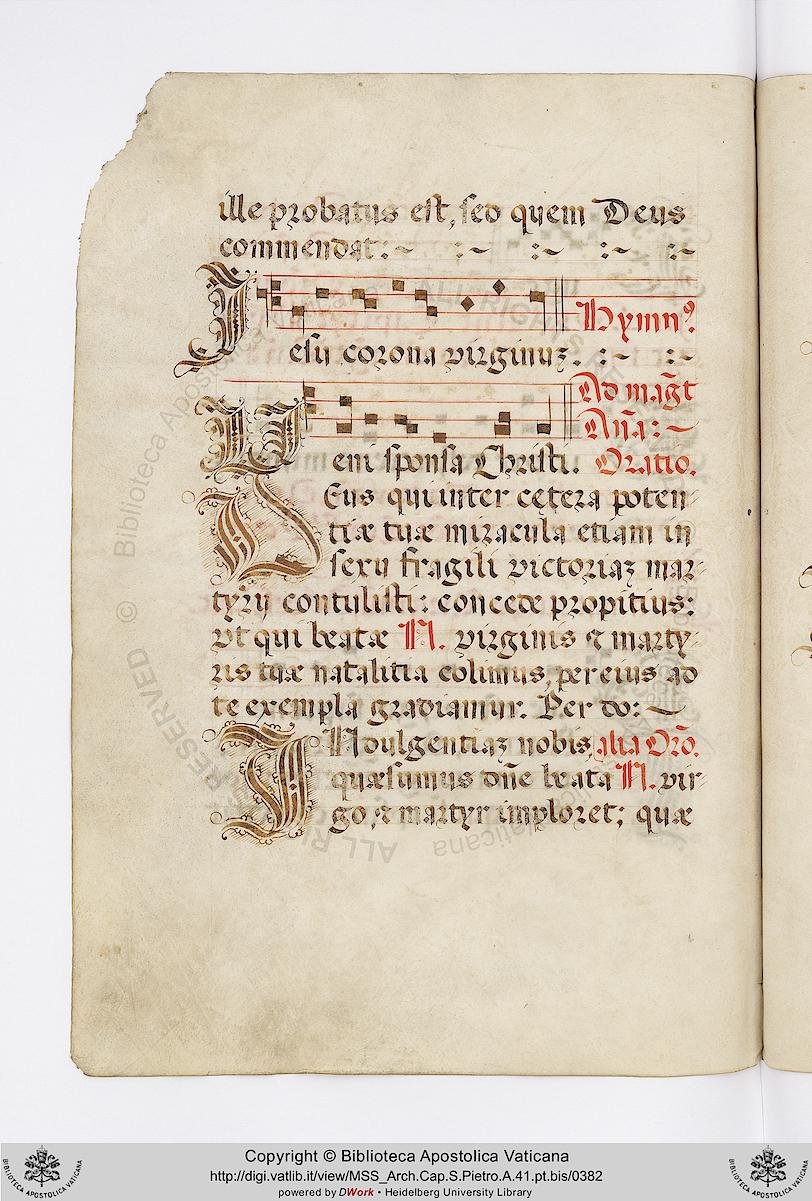 ille probatus est, sed quem Deus
commendat:~ :~ :~ :~ :~
Hymn9
Iesu corona virginuz. :~ :~
Ad mag̃t
Añã:~
Veni sponsa Christi. Oratio.
DEus qui inter cętera poten-
tiæ tuæ miracula etiam in
sexu fragili victoriaz mar-
tyry contulisti: concede propitius:
vt qui beatæ N. virginis & marty-
ris tuæ natalitia colimus, per eius ad
te exempla gradiamur. Per do:~
INdulgentiaz nobis, alia Orõ.
quæsumus dñe beata N. vir-
go, & martyr imploret; quæ
© Biblioteca Apostolica Vaticana
ALL RIGHTS RESERVED
Copyright © Biblioteca Apostolica Vaticana
http://digi.vatlib.it/view/MSS_Arch.Cap.S.Pietro.A.41.pt.bis/0382
powered by DWork • Heidelberg University Library
BIBLIOTECA APOSTOLICA VATICANA
BIBLIOTECA APOSTOLICA VATICANA